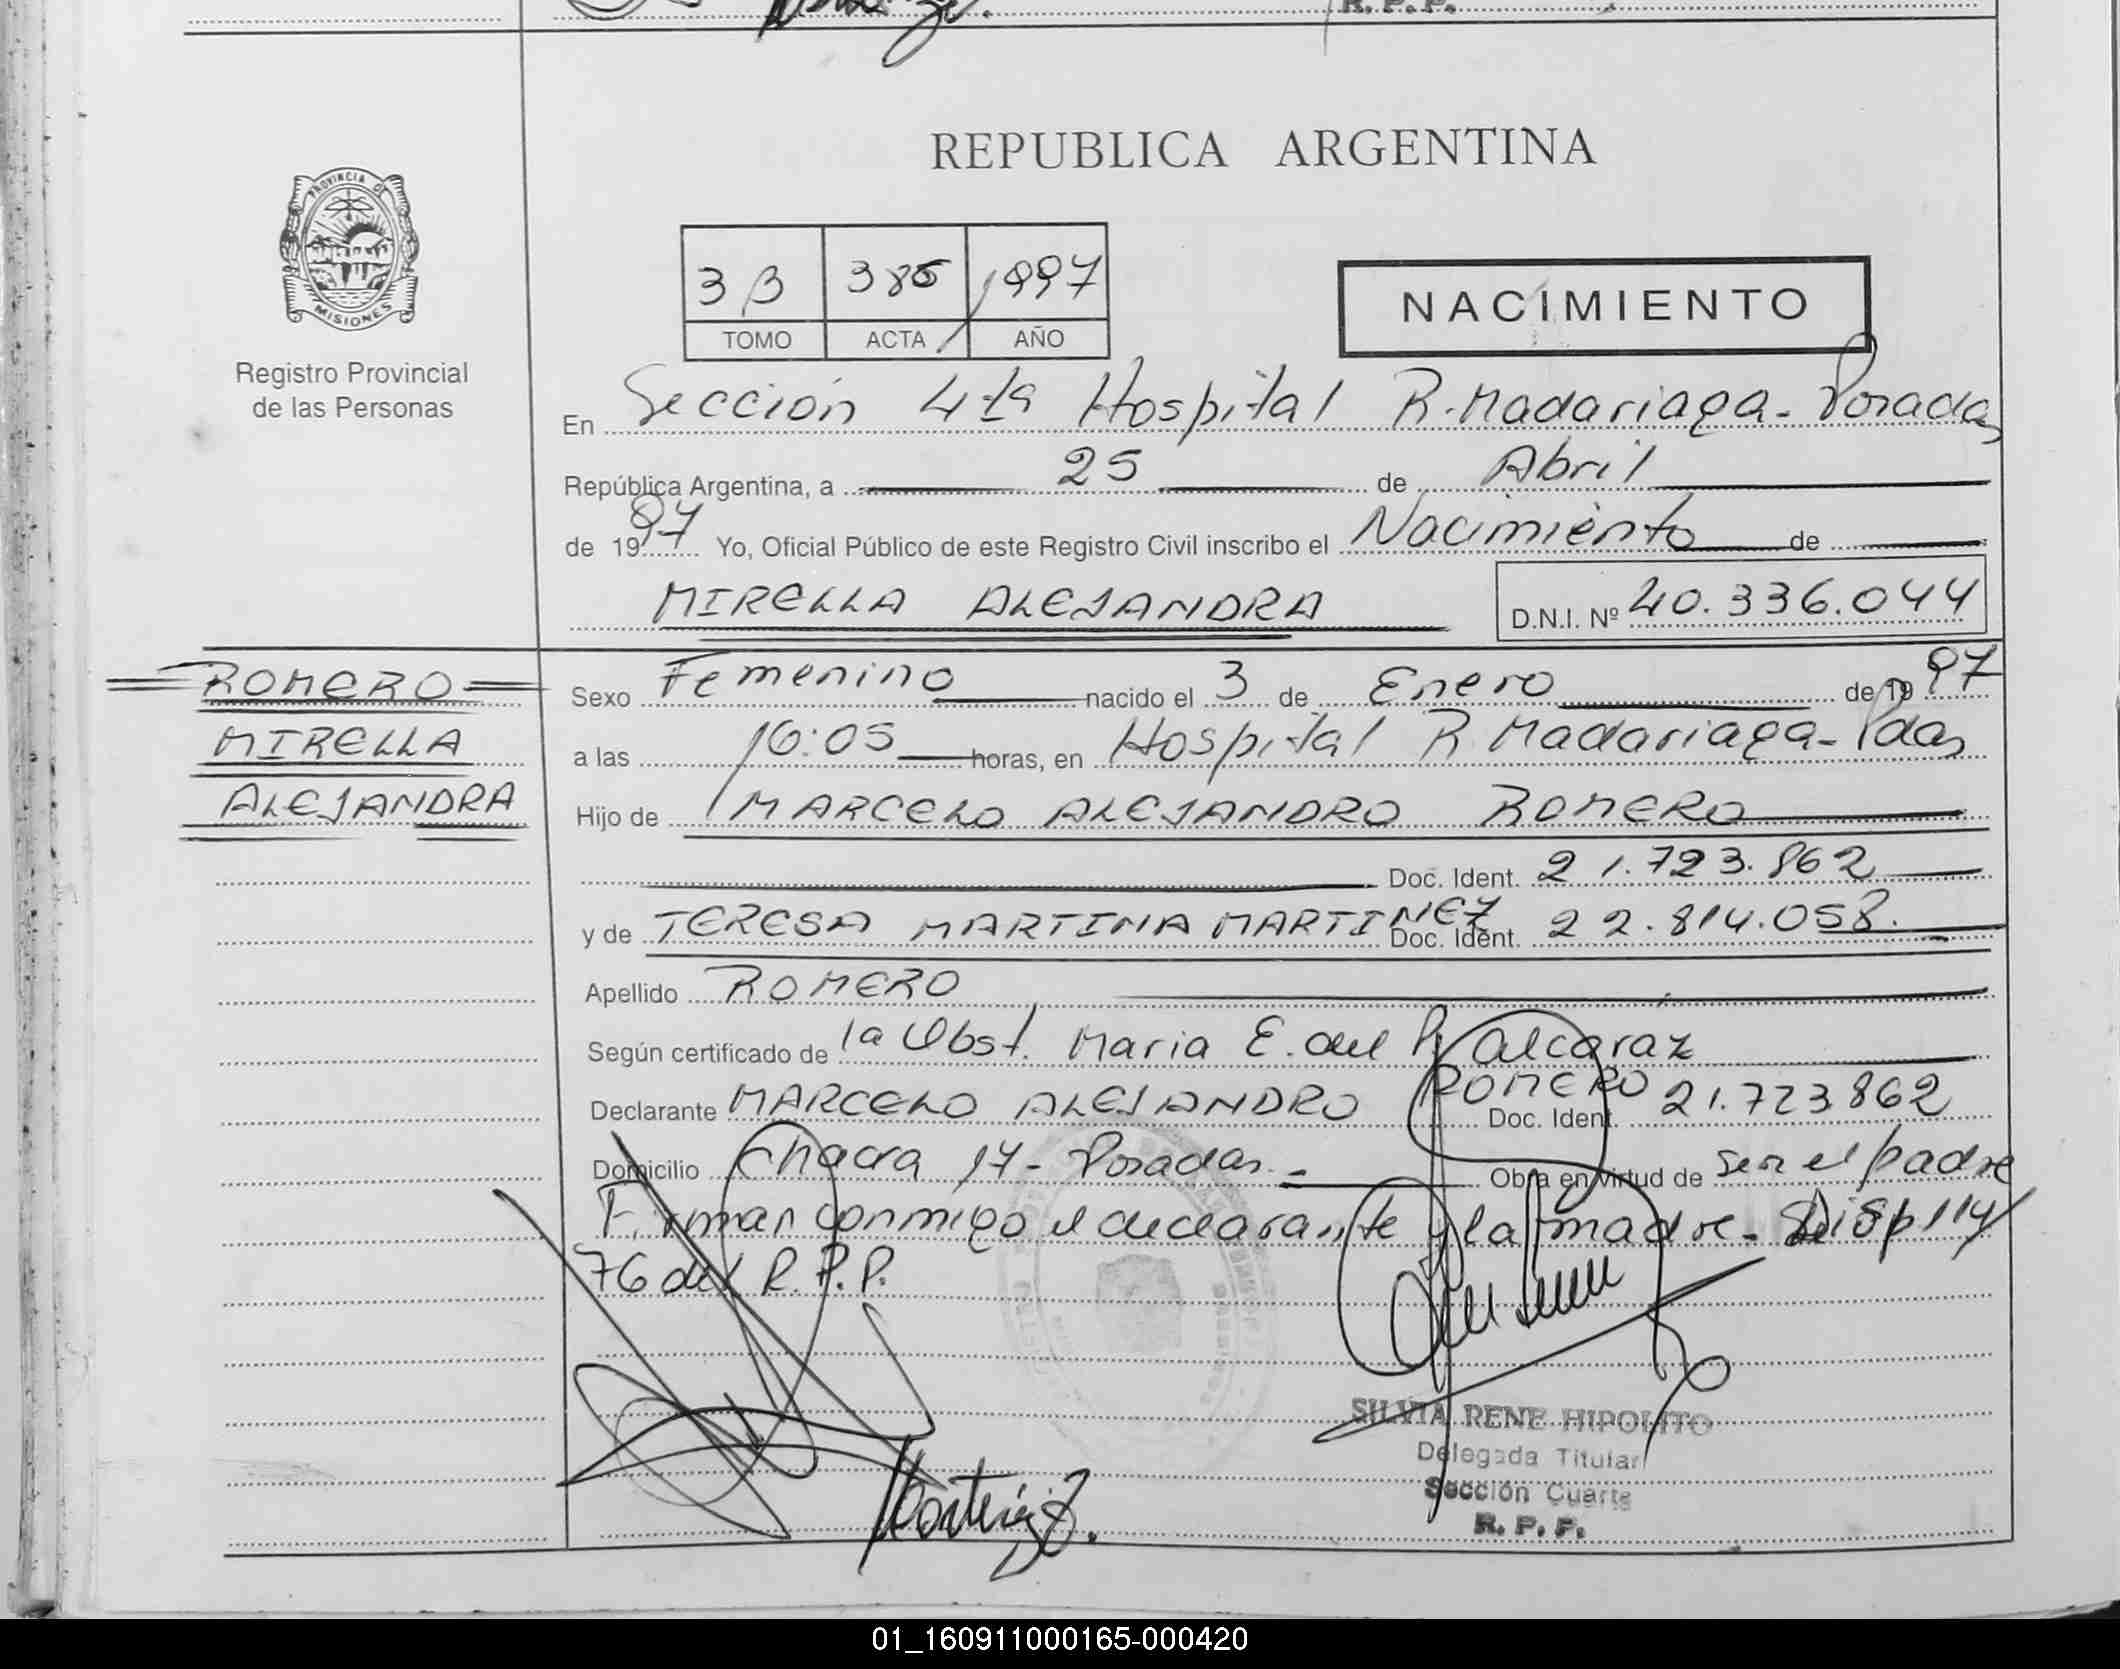 R. P. P.
REPUBLICA ARGENTINA
PROVINCIA DE
MISIONES
Registro Provincial
de las Personas
33 385 1997
TOMO ACTA AÑO
NACIMIENTO
En Sección 4ta Hospital R. Madariaga - Posadas
República Argentina, a 25 de Abril
de 1997 Yo, Oficial Público de este Registro Civil inscribo el Nacimiento de
MIRELLA ALEJANDRA D.N.I. Nº 40.336.044
ROMERO
MIRELLA
ALEJANDRA
Sexo Femenino nacido el 3 de Enero de 19 97
a las 16:05 horas, en Hospital R. Madariaga - Pdas
Hijo de MARCELO ALEJANDRO ROMERO
Doc. Ident. 21.723.862
y de TERESA MARTINA MARTINEZ Doc. Ident. 22.814.058.
Apellido ROMERO
Según certificado de la Obst. Maria E. del Alcaraz
Declarante MARCELO ALEJANDRO ROMERO Doc. Ident. 21.723.862
Domicilio Chacra 17 - Posadas - Obra en virtud de ser el padre
Firman conmigo el declarante y la madre - Disp 114/
76 del R.P.P.
SILVIA RENE HIPOLITO
Delegada Titular
Sección Cuarta
R. P. P.
01_160911000165-000420